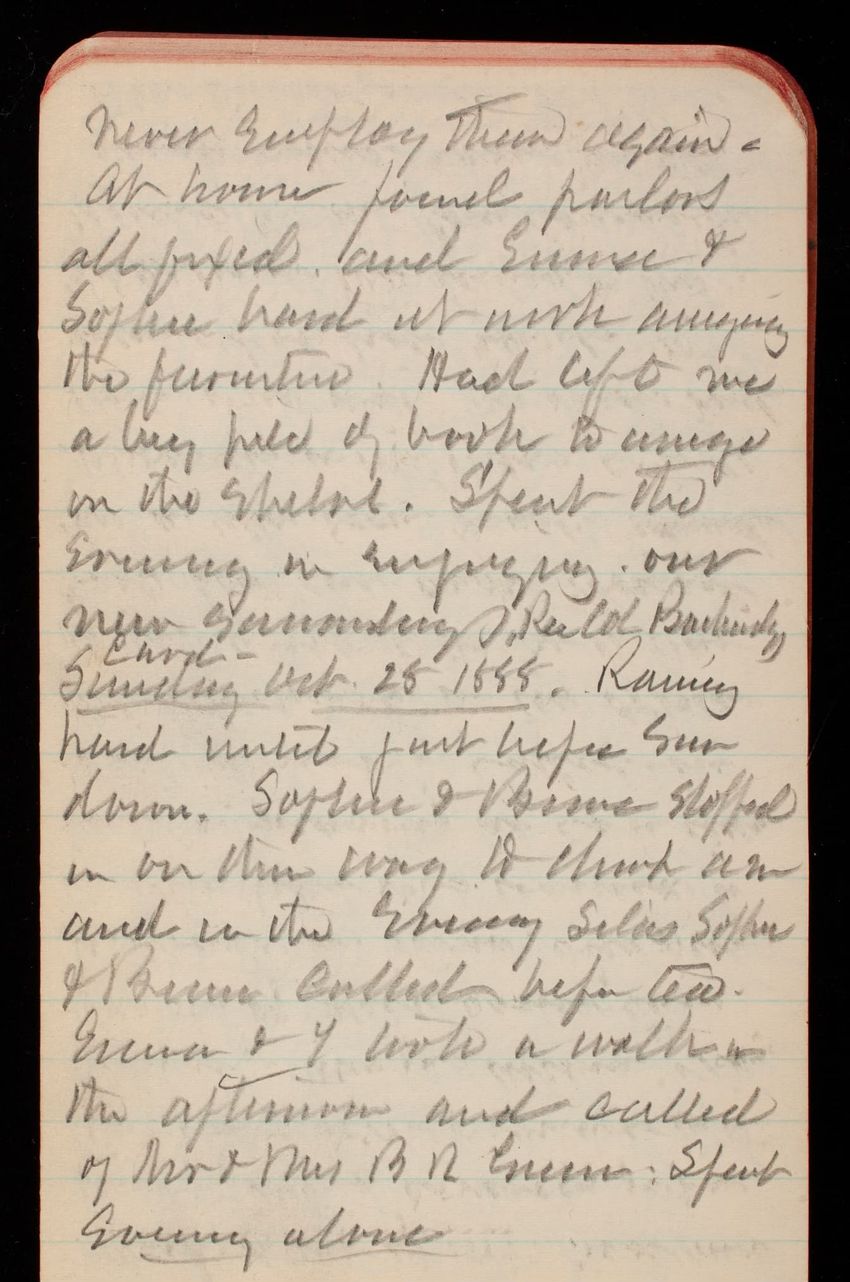 never Employ them again -
At home found parlors
all fixed. and Emma &
Sophie hard at work arranging
the furniture. Had left me
a big pile of book to arrange
on the Shelve. Spent the
Evening in enjoying our
new Surroundings, Recd
card -
Sunday Oct 28 1888. Raining
hard until just before Sun
down. Sophie & Bonnie Stopped
in on their way to church
and in the Evening Silas Sophie
& called before tea.
Emma & I took a walk in
the afternoon and called
of Mr & Mrs B R Green. Spent
Evening alone